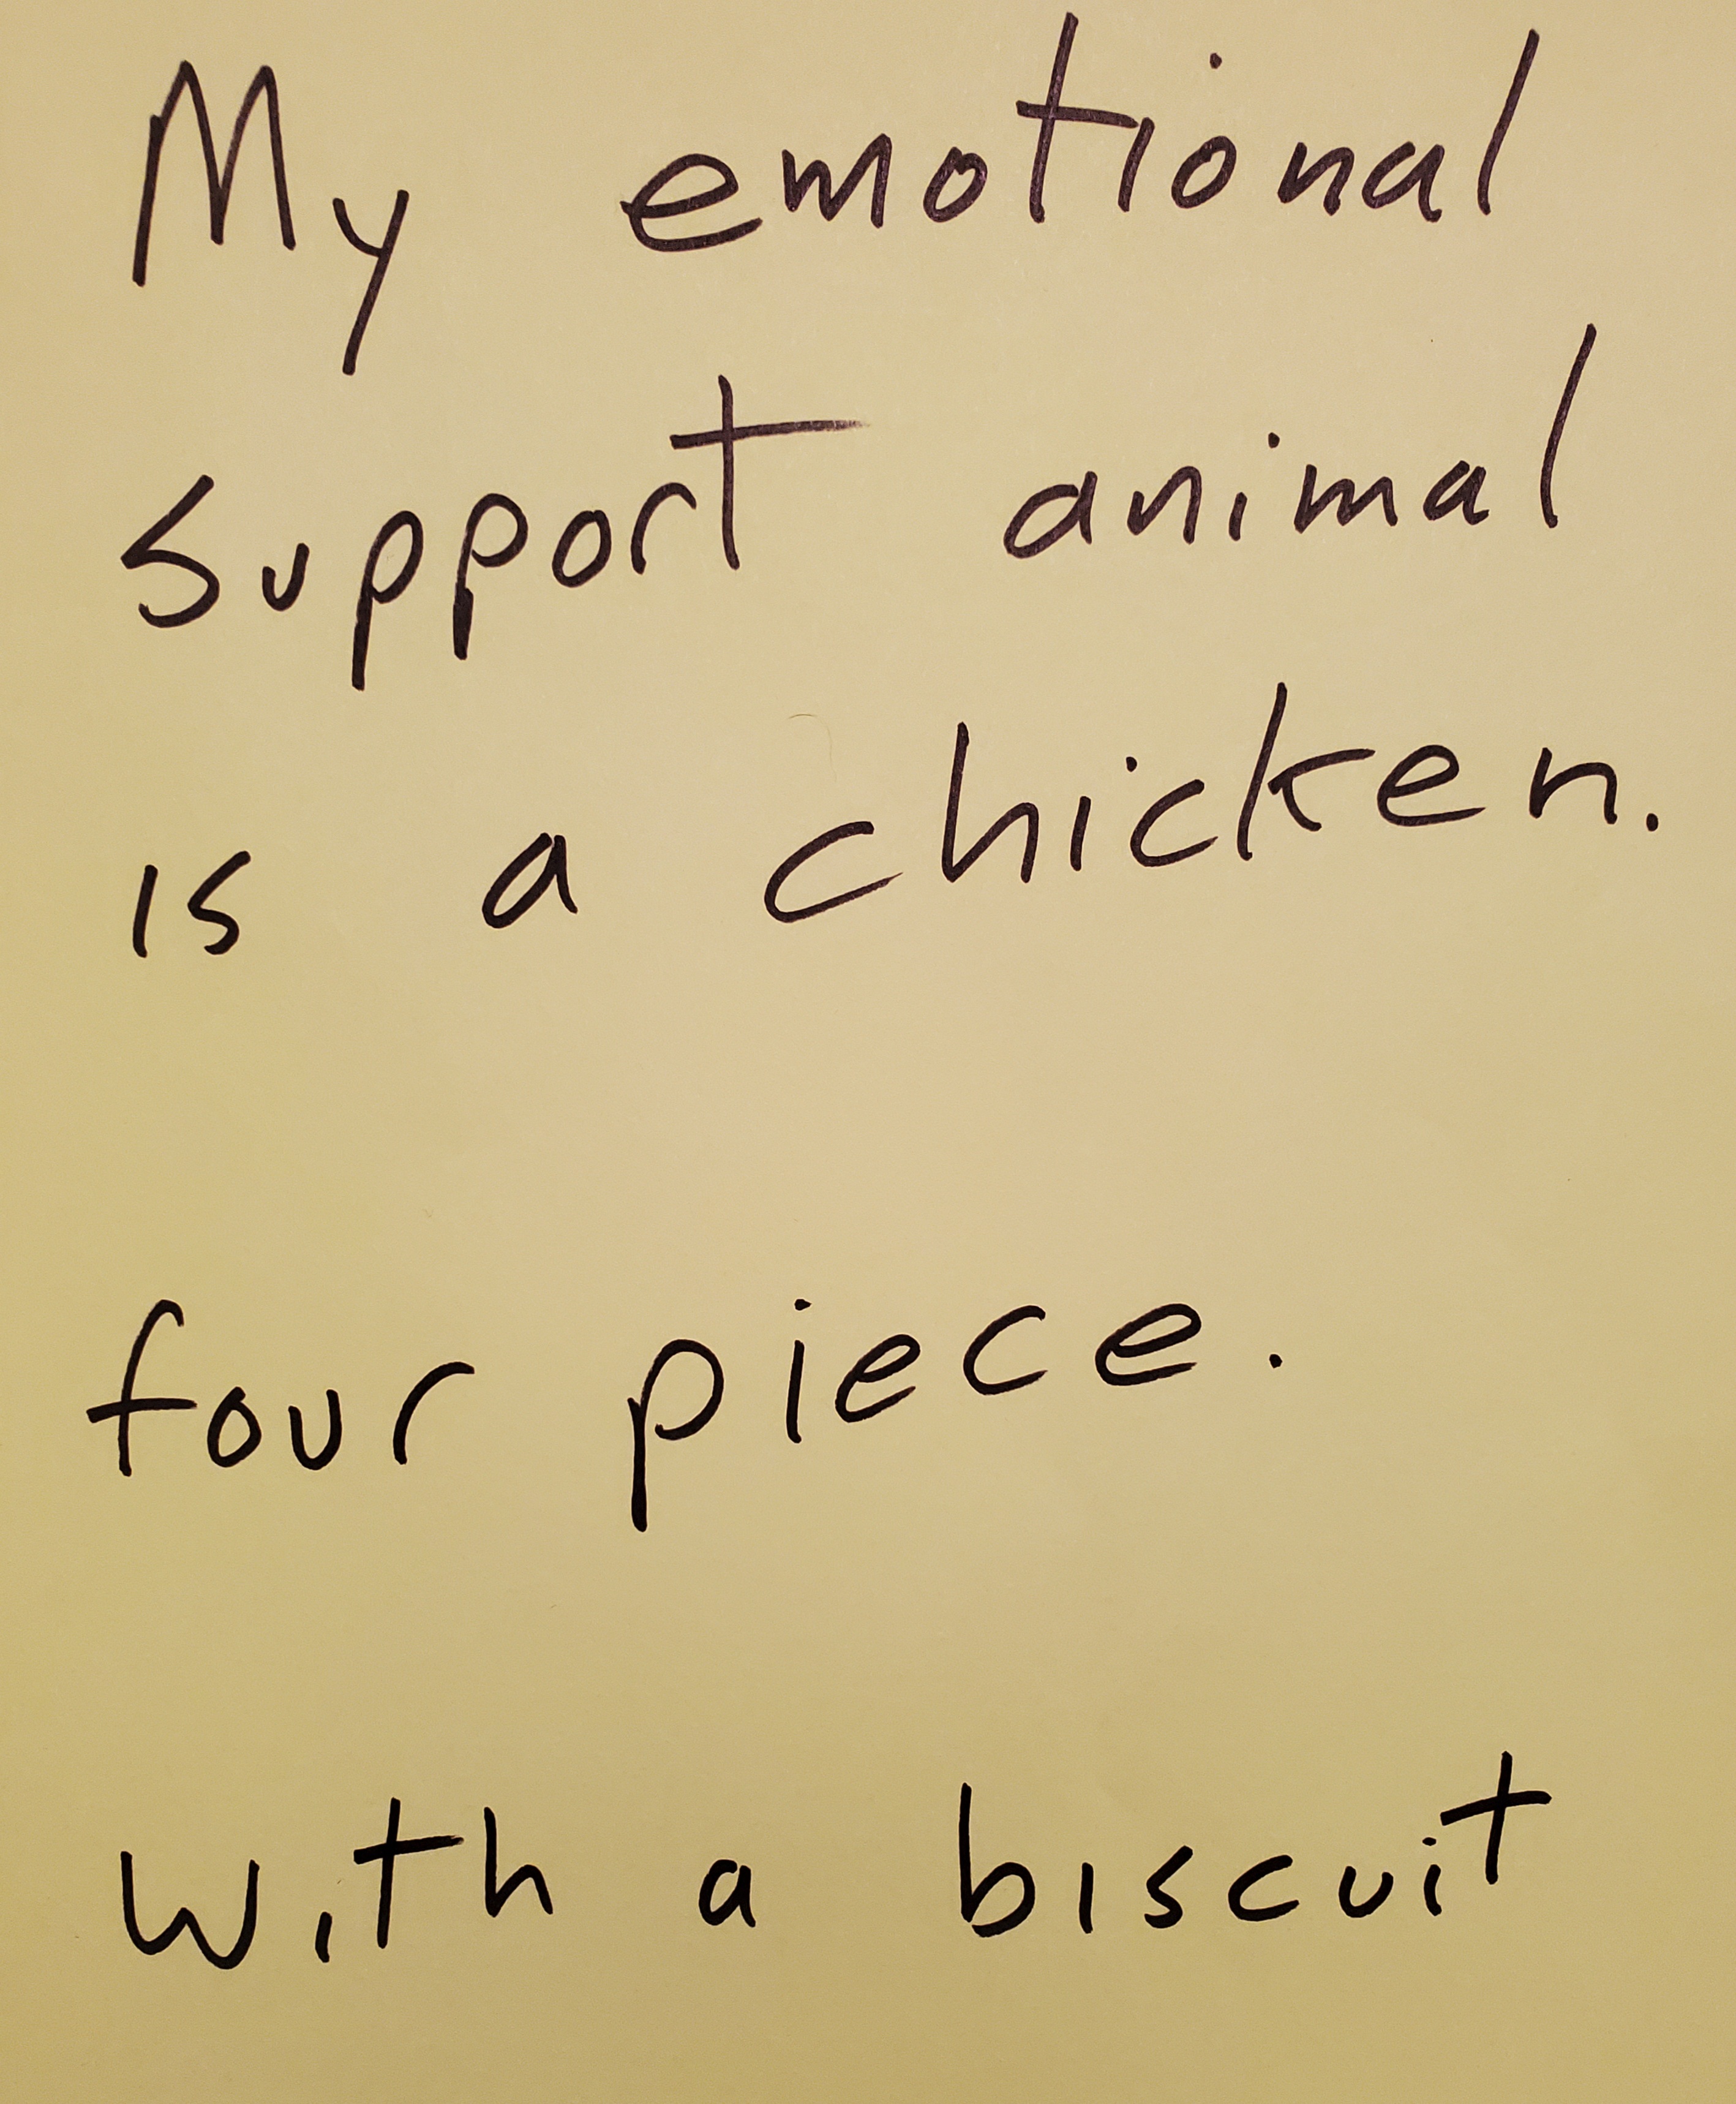 My emotional
support animal
is a chicken.
four piece.
with a biscuit